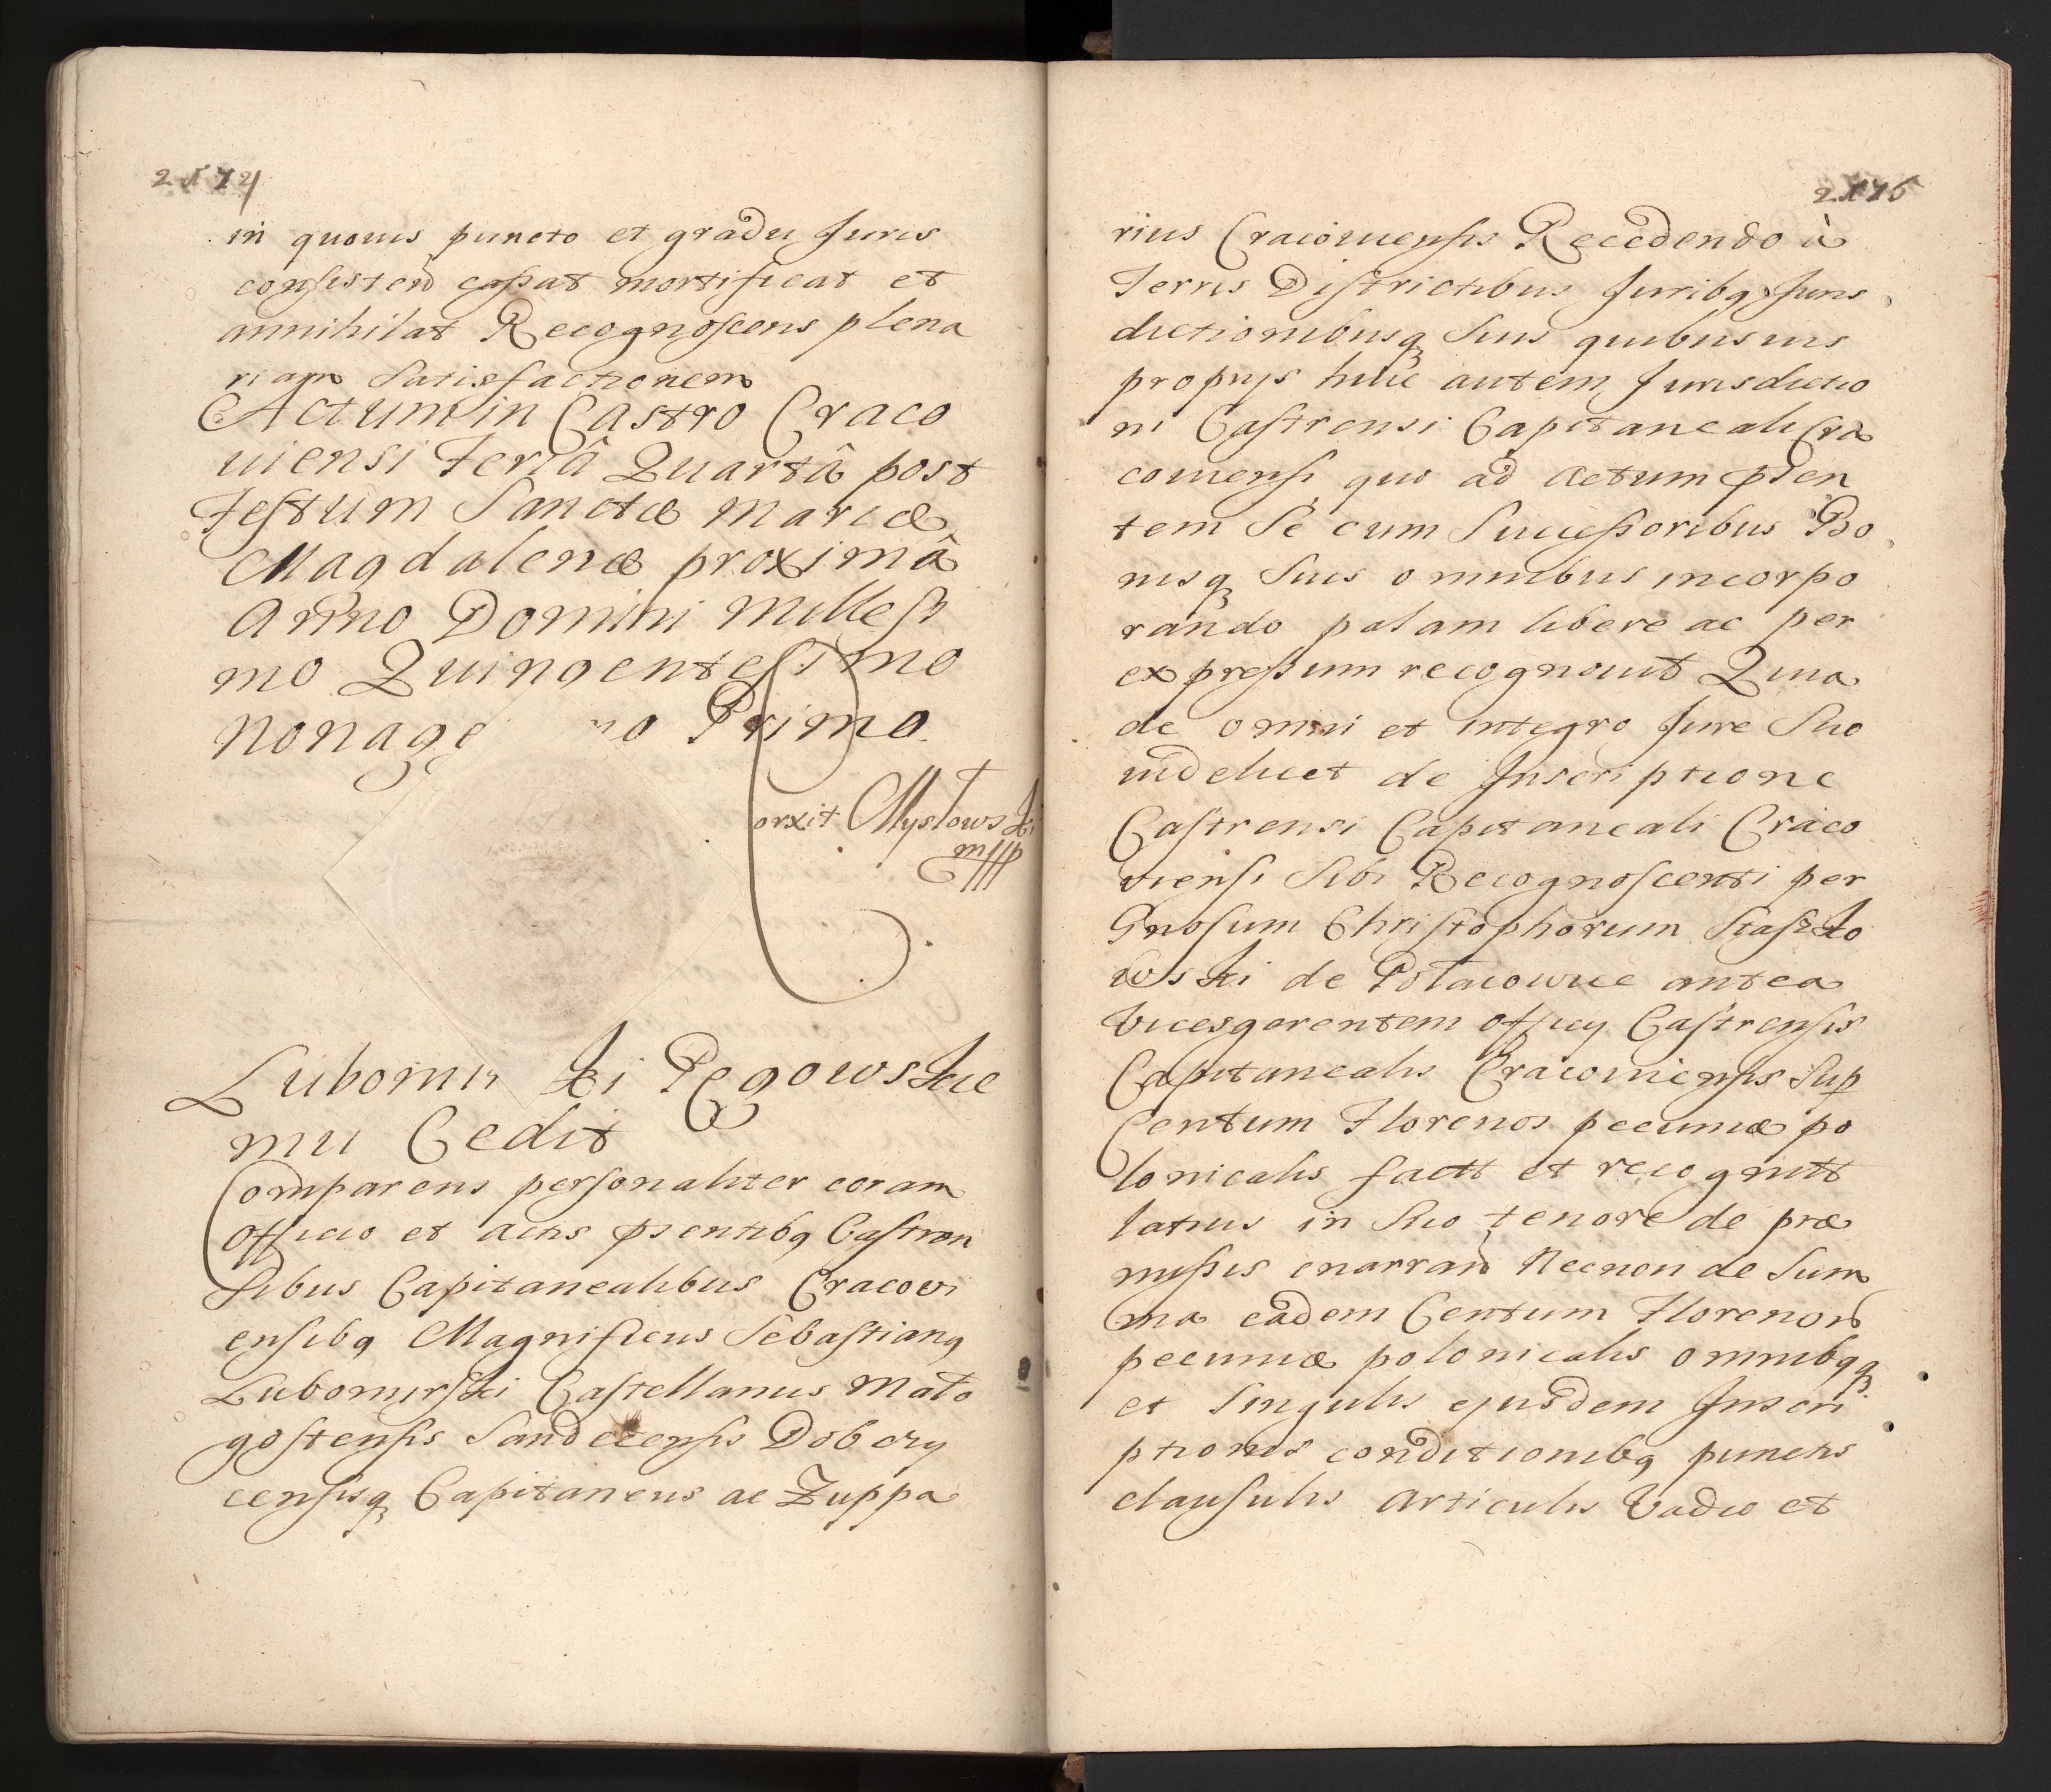 2174
in quovis puncto et gradu Juris
consisteñ cassat mortificat et
annihilat Recognoscens plena
riam Satisfactionem
Actum in Castro Craco
uiensi Feriâ Quartâ post
Festum Sanctæ Mariæ
Magdalenæ proximâ
Anno Domini Millesi
mo Quingentesimo
Nonage mo Primo
Mysłowski
mpp
Lubomir ski Pęgowskie
mu Cedit
Comparens personaliter coram
Officio et Actis pñtibq Castren
sibus Capitanealibus Cracovi
ensibq Magnificus Sebastianq
Lubomirski Castellanus Mało
gostensis Sandecensis Dobczy
censisq Capitaneus ac Zuppa
2175
rius Cracouiensis Recedendo à
Terris Districtibus Juribq Juris
dictionibusq Suis quibusuis
proprijs huic autem Jurisdictio
ni Castrensi Capitaneali Cra
couiensi quo ad Actum pñsen
tem Se cum Successoribus Bo
nisq Suis omnibus incorpo
rando palam libere ac per
expressum recognouit Quia
de omni et integro Jure Suo
uidelicet de Inscriptione
Castrensi Capitaneali Craco
viensi Sibi Recognoscenti per
Gnosum Christophorum Staszko
wski de Połacowice antea
Vicesgerentem officij Castrensis
Capitanealis Cracouiensis Sup
Centum Florenos pecuniæ po
lonicalis factt et recognitt
latius in Suo tenore de præ
missis enarrañ Necnon de Sum
ma eadem Centum Florenorũ
pecuniæ polonicalis omnibqq
et Singulis ejusdem Inscri
ptionis conditionibq punctis
clausulis Articulis Vadio et